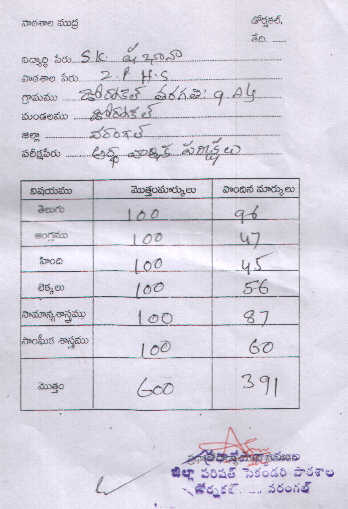 పాఠశాల ముద్ర డోర్నకల్,
తేది. ......
విద్యార్థి పేరు S.K. షబానా
పాఠశాల పేరు Z.P.H.S
గ్రామము డోర్నకల్ తరగతి: 9
మండలము డోర్నకల్
జిల్లా వరంగల్
పరీక్షపేరు అర్ధ వార్షిక పరీక్షలు
విషయము మొత్తంమార్కులు పొందిన మార్కులు
తెలుగు 100 96
ఆంగ్లము 100 47
హింది 100 45
లెక్కలు 100 56
సామాన్యశాస్త్రము 100 87
సాంఘీక శాస్త్రము 100 60
మొత్తం 600 391
జిల్లా పరిషత్ సెకండరి పాఠశాల
డోర్నకల్ వరంగల్